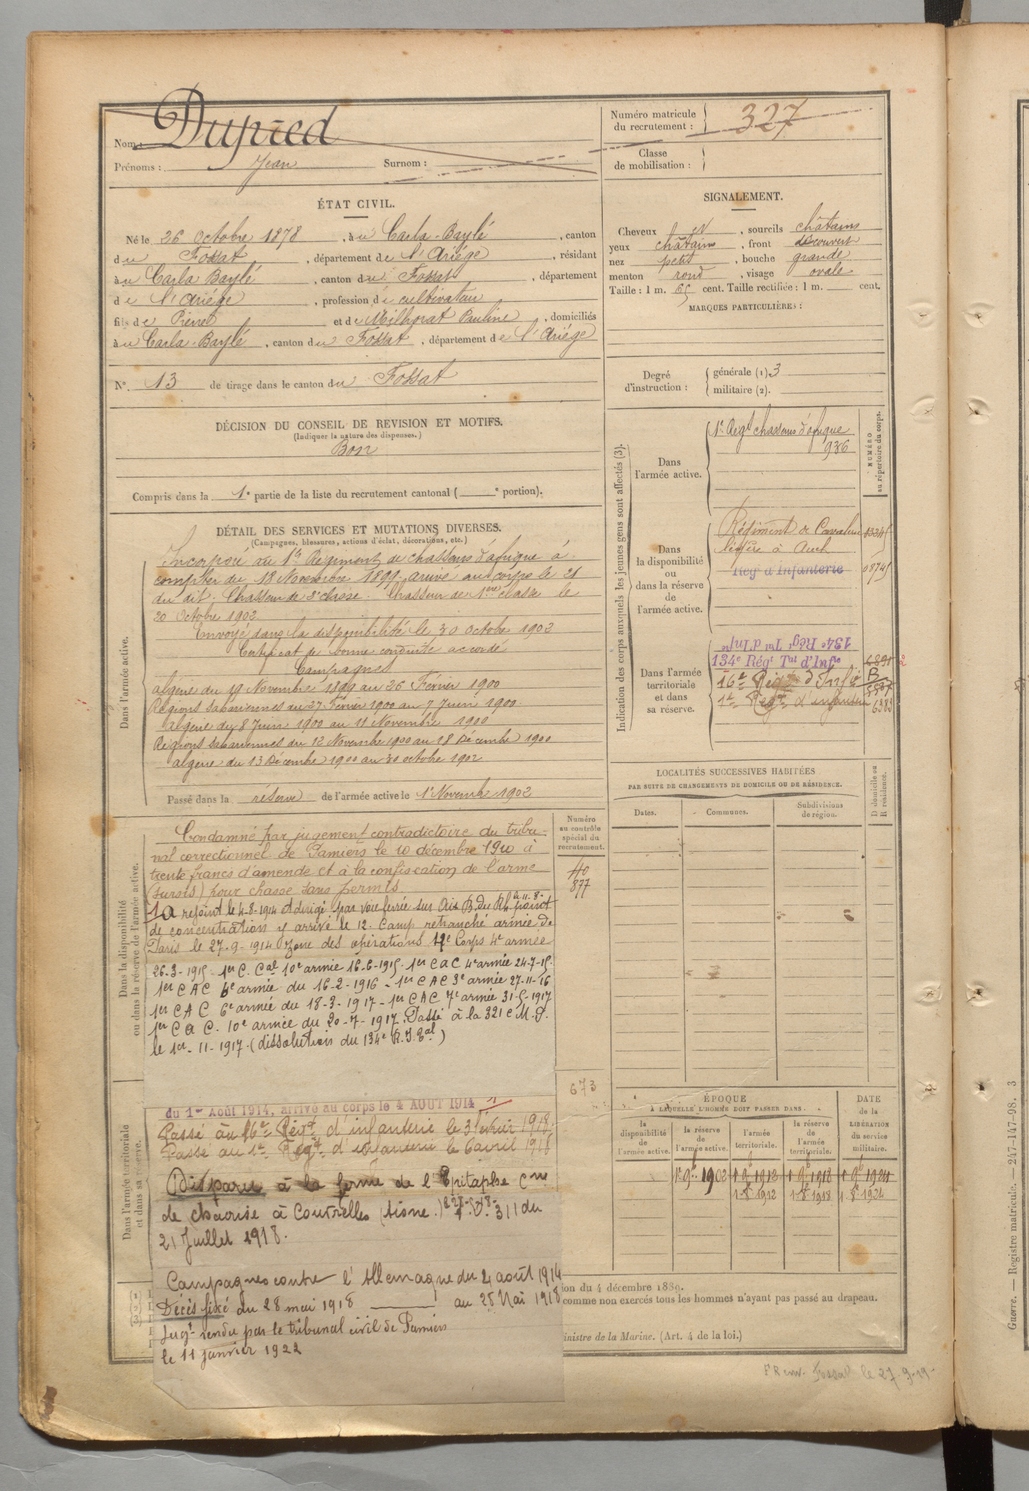 Nom : Dupied
Prénoms : Jean Surnom :
Numéro matricule du recrutement : 327
Classe de mobilisation :
ÉTAT CIVIL.
Né le 26 Octobre 1878, à u Carla-Baylé, canton
du Fossat, département de l'Ariége, résidant
à u Carla Baylé, canton du Fossat, département
de l'Ariége, profession de cultivateur
fils de Pierre et de Milhorat Pauline, domiciliés
à u Carla-Baylé, canton du Fossat, département de l'Ariége
N° 13 de tirage dans le canton du Fossat
DÉCISION DU CONSEIL DE REVISION ET MOTIFS.
(Indiquer la nature des dispenses.)
Bon
Compris dans la 1e partie de la liste du recrutement cantonal ( e portion).
SIGNALEMENT.
Cheveux, sourcils châtains
yeux châtains, front découvert
nez petit, bouche grande
menton rond, visage ovale
Taille : 1 m. 65 cent. Taille rectifiée : 1 m. cent.
MARQUES PARTICULIÈRES :
Degré d'instruction : générale (1) 3
militaire (2).
Indication des corps auxquels les jeunes gens sont affectés (3).
NUMÉRO au répertoire du corps.
Dans l'armée active.
1er Regt chasseurs d'afrique
936
Dans la disponibilité ou dans la réserve de l'armée active.
Régiment de Cavalerie
légère à Auch
Reg d'Infanterie
Dans l'armée territoriale et dans sa réserve.
134e Rég Tal d'Inf
134e Régt Tal d'Infie
16e Régt d'Infie
1er Régt d'infanterie
DÉTAIL DES SERVICES ET MUTATIONS DIVERSES.
(Campagnes, blessures, actions d'éclat, décorations, etc.)
Dans l'armée active.
Incorporé au 1er Régiment de chasseurs d'afrique à
compter du 18 Novembre 1899, arrivé au corps le 21
du dit. Chasseur de 2e classe. Chasseur de 1ere classe le
20 Octobre 1902
Envoyé dans la disponibilité le 30 octobre 1902
Certificat de bonne conduite accordé
Campagnes
algérie du 19 Novembre 1899 au 26 Février 1900
Régions sahariennes du 27 Février 1900 au 7 Juin 1900.
algérie du 8 Juin 1900 au 11 Novembre 1900
Régions sahariennes du 12 Novembre 1900 au 18 Décembre 1900
algérie du 13 Décembre 1900 au 30 octobre 1902
Passé dans la réserve de l'armée active le 1er Novembre 1902
LOCALITÉS SUCCESSIVES HABITÉES
PAR SUITE DE CHANGEMENTS DE DOMICILE OU DE RÉSIDENCE.
Dates. Communes. Subdivisions de région. D domicile ou R résidence.
Numéro au contrôle spécial du recrutement.
40
877
673
Dans la disponibilité ou dans la réserve de l'armée active.
Condamné par jugement contradictoire du tribu-
nal correctionnel de Pamiers le 10 décembre 1910 à
trente francs d'amende et à la confiscation de l'arme
(sursis) pour chasse sans permis
A rejoint le 4-8-1914 et dirigé par voie ferrée sur
de concentration y arrivé le 12. Camp retranché armée de
Paris le 27-9-1914 zone des opérations Corps 4e armée
26-3-1915. 1er C. Cal 10e armée 16-6-1915. 1er CAC 4e armée 24-7-15.
1er CAC 6e armée du 16-2-1916 - 1er CAC 3e armée 27-11-16
1er CAC 6e armée du 18-3-1917 - 1er CAC 7e armée 31-5-1917
1er CAC. 10e armée du 20-7-1917. Passé à la 321e M.P.
le 1er-11-1917. (dissolution du 134e R.I.Tal)
Dans l'armée territoriale et dans sa réserve.
du 1er Août 1914, arrivé au corps le 4 AOUT 1914
Passé au 16e Régt d'infanterie le 3 février 1918.
Passé au 1er Régt d'infanterie le 6 avril 1918
Disparu à la ferme de l'Epitaphe Cne
de Chaouse à Courcelles (Aisne.) 311 du
21 Juillet 1918.
Campagnes contre l'Allemagne du 4 août 1914
au 28 Mai 1918
Décès fixé du 28 mai 1918
Jugt rendu par le tribunal civil de Pamiers
le 11 janvier 1922
ÉPOQUE
A LAQUELLE L'HOMME DOIT PASSER DANS
DATE de la LIBÉRATION du service militaire.
la disponibilité de l'armée active. la réserve de l'armée active. l'armée territoriale. la réserve de l'armée territoriale.
1er 9bre 1902 1er 9b 1912 1er 9b 1918 1er 9b 1924
1-8-1912 1-8-1918 1-8-1924
ion du 4 décembre 1889.
comme non exercés tous les hommes n'ayant pas passé au drapeau.
inistre de la Marine. (Art. 4 de la loi.)
Fossat le 27-9-19-
Guerre. — Registre matricule. — 247-147-98. 3